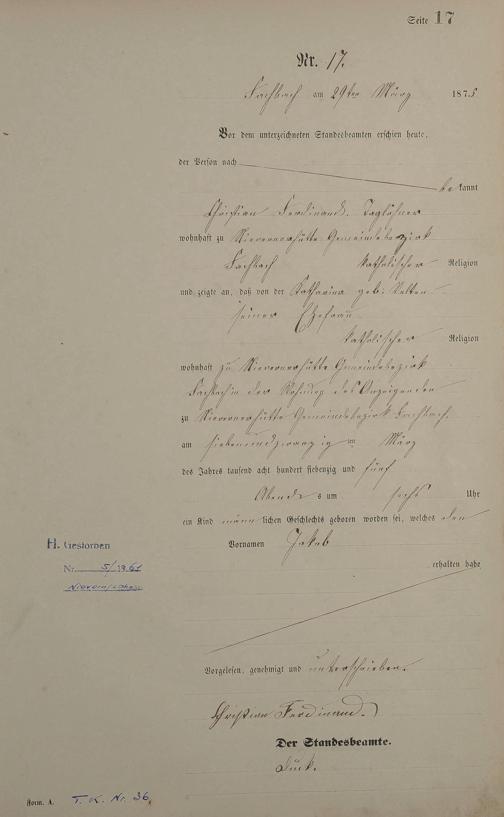 Seite 17
Nr. 17.
Fachbach am 29ten März 1875
Vor dem unterzeichneten Standesbeamten erschien heute,
der Person nach
bekannt
Christian Ferdinand, Taglöhner
wohnhaft zu Nievernerhütte Gemeindebezirk
Fachbach katholischer Religion
und zeigte an, daß von der Katharina geb.
seiner Ehefrau
katholischer Religion
wohnhaft zu Nievernerhütte Gemeindebezirk
Fachbach in der Wohnung des Anzeigenden
zu Nievernerhütte Gemeindebezirk Fachbach
am siebenundzwanzigten März
des Jahres tausend acht hundert siebenzig und fünf
Abends um sechs Uhr
ein Kind männlichen Geschlechts geboren worden sei, welches den
Vornamen Jakob
erhalten habe
H. Gestorben
Nr. 5/1961
Vorgelesen, genehmigt und unterschrieben.
Christian Ferdinand.
Der Standesbeamte.
Form. A. T. K. Nr. 36